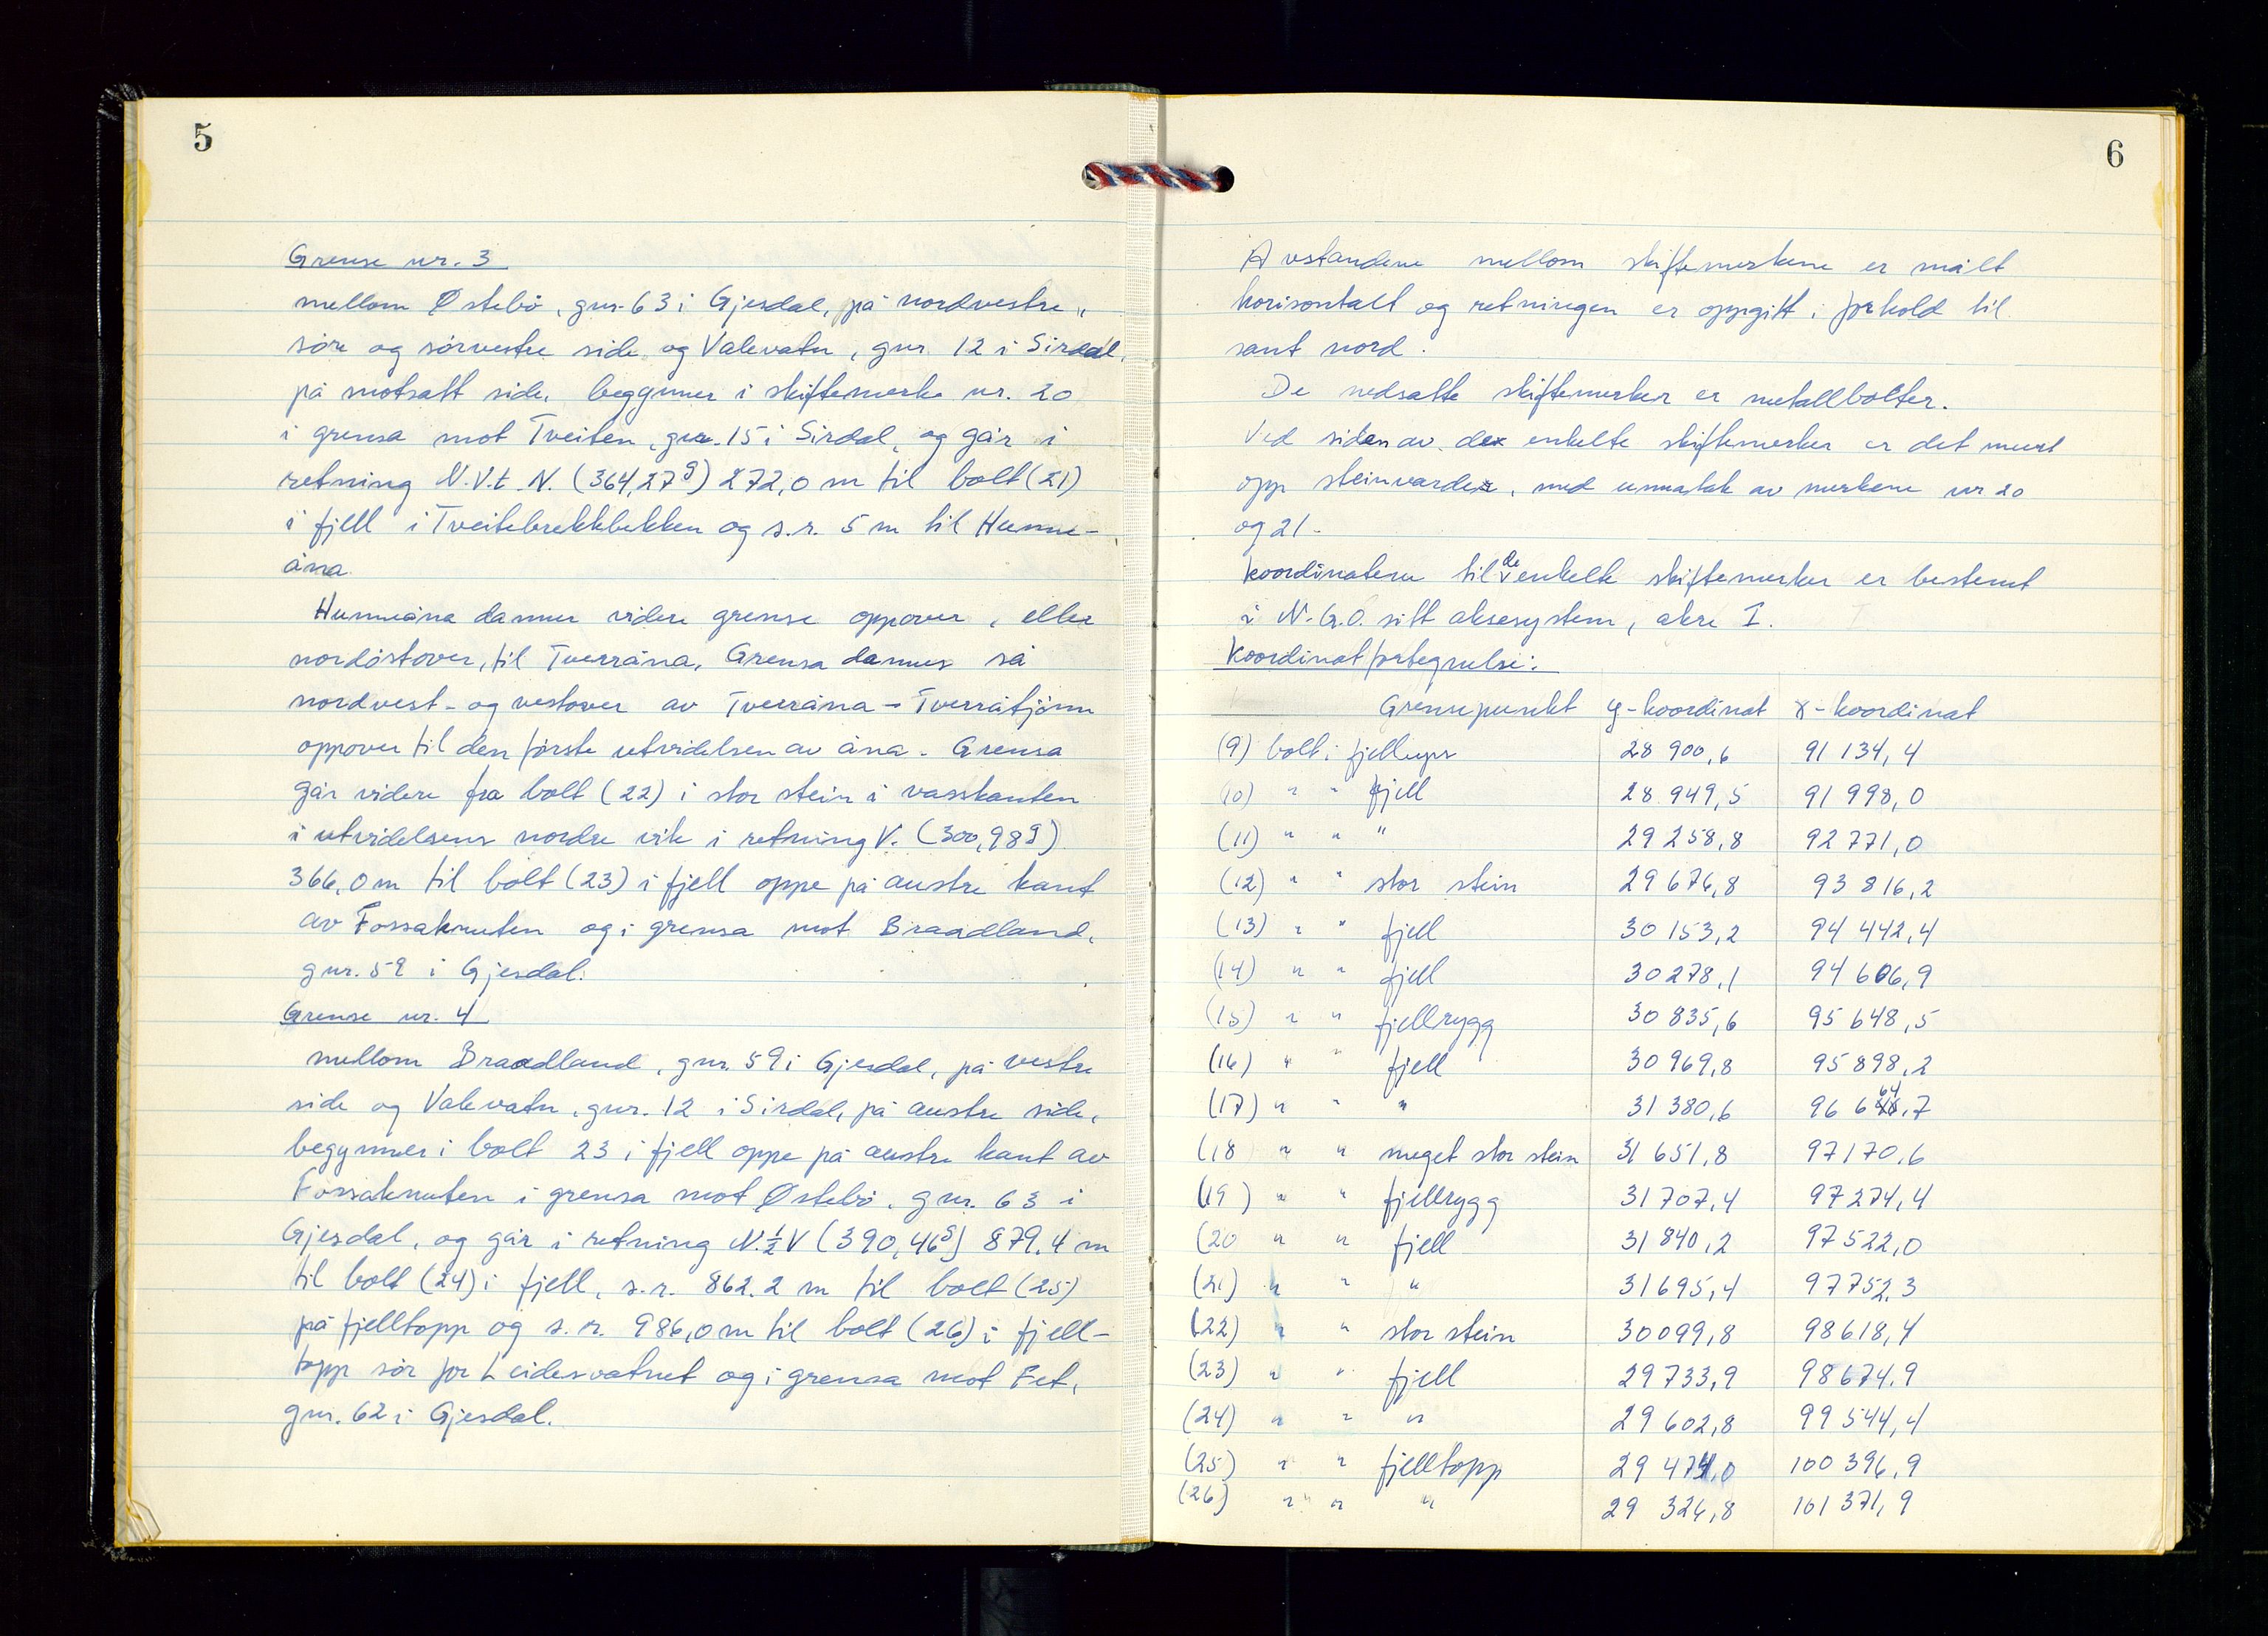 5
Grense nr. 3
mellom Østebö, gnr. 63 i Gjesdal, på nordvestre,
söre og sörvestre side og Valevatn, gnr. 12 i Sirdal,
på motsatt side, begynner i skiftemerke nr. 20
i grensa mot Tveiten, gnr. 15 i Sirdal, og går i
retning N.V.t.N. (364,27g) 272,0 m til bolt (21)
i fjell i Tveitebrekkbekken og s.r. 5 m til Hunne-
åna.
Hunneåna danner videre grense oppover, eller
nordöstover, til Tverråna. Grensa dannes så
nordvest- og vestover av Tverråna - Tverråtjönn
oppover til den förste utvidelsen av åna. Grensa
går videre fra bolt (22) i stor stein i vasskanten
i utvidelsens nordre vik i retning V. (300,98g)
366,0 m til bolt (23) i fjell oppe på austre kant
av Fossaknuten og i grensa mot Braadland,
gnr. 59 i Gjesdal.
Grense nr. 4
mellom Braadland, gnr. 59 i Gjesdal, på vestre
side og Valevatn, gnr. 12 i Sirdal, på austre side,
begynner i bolt 23 i fjell oppe på austre kant av
Fossaknuten i grensa mot Østebö, gnr. 63 i
Gjesdal, og går i retning N.½V (390,46g) 879,4 m
til bolt (24) i fjell, s.r. 862.2 m til bolt (25)
på fjelltopp og s.r. 986,0 m til bolt (26) i fjell-
topp sör for Leidesvatnet og i grensa mot Fet,
gnr. 62 i Gjesdal.
6
Avstandene mellom skiftemerkene er målt
horisontalt og retningen er oppgitt i forhold til
sant nord.
De nedsatte skiftemerker er metallbolter.
Ved siden av de enkelte skiftemerker er det murt
opp steinvarder, med unntak av merkene nr 20
og 21.
Koordinatene til de enkelte skiftemerker er bestemt
i N.G.O. sitt aksesystem, akse I.
Koordinatfortegnelse:
Grensepunkt y-koordinat x-koordinat
(9) bolt i fjellupr 28 900,6 91 134,4
(10) " " fjell 28 949,5 91 998,0
(11) " " " 29 258,8 92 771,0
(12) " " stor stein 29 676,8 93 816,2
(13) " " fjell 30 153,2 94 442,4
(14) " " fjell 30 278,1 94 606,9
(15) " " fjellrygg 30 835,6 95 648,5
(16) " " fjell 30 969,8 95 898,2
(17) " " " 31 380,6 96 664,7
(18 " " meget stor stein 31 651,8 97 170,6
(19) " " fjellrygg 31 707,4 97 274,4
(20 " " fjell 31 840,2 97 522,0
(21) " " " 31 695,4 97 752,3
(22) " " stor stein 30 099,8 98 618,4
(23) " " fjell 29 733,9 98 674.9
(24) " " " 29 602,8 99 544,4
(25) " " fjelltopp 29 474,0 100 396,9
(26) " " " 29 326,8 101 371,9